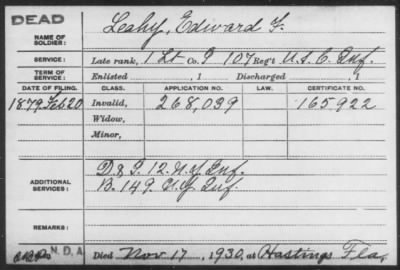 DEAD
NAME OF SOLDIER: Leahy, Edward F.
SERVICE: Late rank, 1 Lt Co. I 107 Reg't U.S.C. Inf.
TERM OF SERVICE: Enlisted , 1 Discharged , 1
DATE OF FILING. CLASS. APPLICATION NO. LAW. CERTIFICATE NO.
1879 Feb 20 Invalid, 268,039 165,922
Widow,
Minor,
ADDITIONAL SERVICES:
D & I. 12. N.Y. Inf.
B. 149. N.Y. Inf.
REMARKS:
N.D.A Died Nov. 17, 1930, at Hastings Fla.